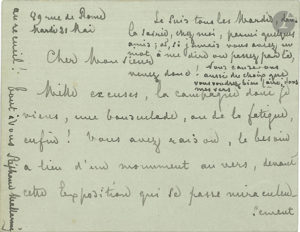 89 rue de Rome
Mardi 21 Mai
Je suis tous les Mardis dans
la soirée, chez moi, parmi quelques
amis; et, si jamais vous aviez un
mot à me dire ou passez par là
venez donc! Nous causerons
aussi du choix que
vous voudrez bien faire, dans
mes vers
Cher Monsieur
Mille excuses, la campagne dont je
viens, une bousculade, ou de la fatigue,
enfin! Vous avez raison, le besoin
a lieu d'un monument au vers, devant
cette Exposition qui se passe miraculeu
sement
au recueil! tout à vous Stéphane Mallarmé